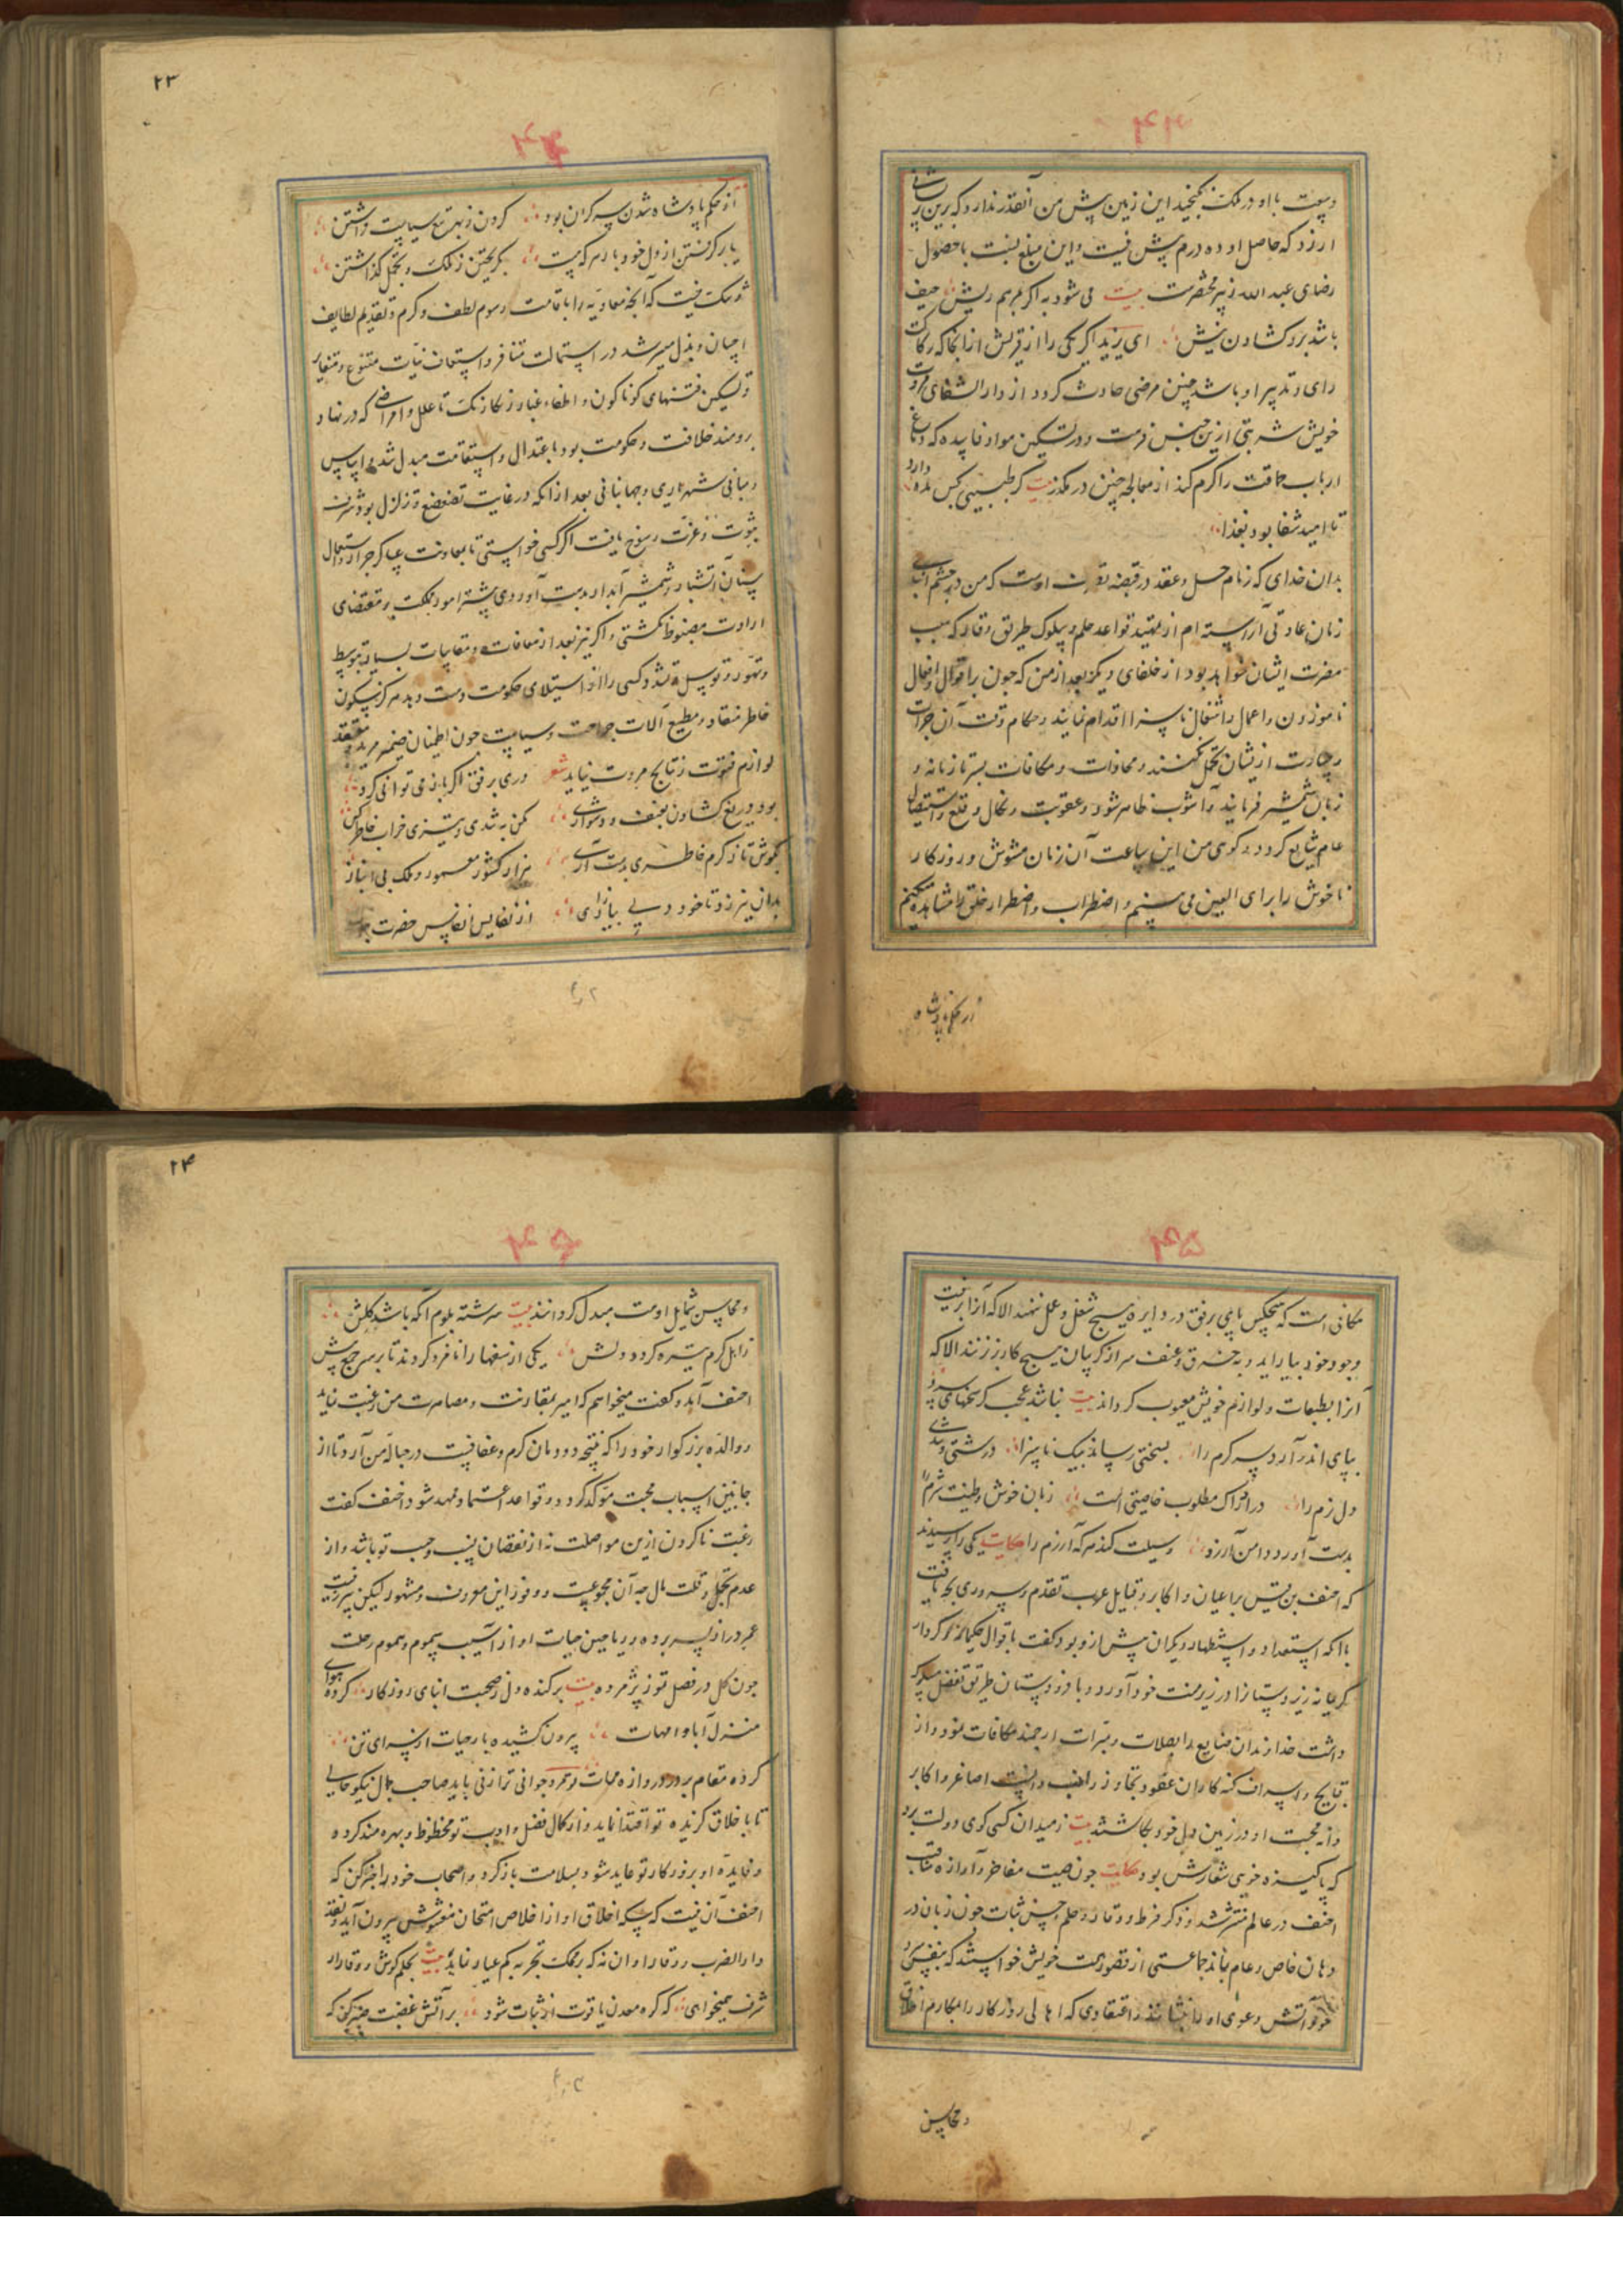 ۴۳
وسعت با او در ملک نگنجید این زمین پیش من آنقدر ندارد که برین
ارزد که حاصل او ده درم پیش نیست و این مبلغ نسبت با حصول
رضای عبد الله زبیر محقرست بیت می شود به اگر مرهم ریش حیف
باشد برو کشادن نیش ای یزید اگر یکی را از قریش از انجا که رکاکت
رای و تدبیر او باشد چنین مرضی حادث گردد از دار الشفای مروت
خویش شربتی ازین جنس فرست و در تسکین مواد فاسده که دماغ
ارباب حماقت را گرم کند از معالجه چنین در مگذر بیت گر طبیبی کس
تا امید شفا بود بغذا
بدان خدای که زمام حل و عقد در قبضه اوست که من در چشم
زمان عادتی آراسته ام از تمهید قواعد حلم و سلوک طریق وقار که سبب
مضرت ایشان خواهد بود از خلفای دیگر بعد از من که چون بر اقوال و افعال
ناموزون و اعمال و اشغال ناسزا اقدام نمایند و حکام وقت آن جرات
و جسارت ازیشان تحمل نکنند و مجازات و مکافات بسر تازیانه و
زبان شمشیر فرمایند و آشوب ظاهر شود و عقوبت و نکال و قلع و استیصال
عام شایع گردد گوی من این ساعت آن زمان مشوش و روزگار
ناخوش را برای العین می بینم و اضطراب و اضطرار خلق را مشاهده میکنم
از حکم پادشاه
۲۳
۴۴
از حکم پادشاه شدن به گران بود گردن ز بهر تیغ سیاست فراشتن
بار گرفتن از دل خود بار هر که هست بگریختن ز ملک و تحمل گذاشتن
و شک نیست که آنچه معاویه را باقامت رسوم لطف و کرم و تقدیم لطایف
احسان و بذل میسر شد در استمالت متنافر و استیناف نیات متنوع و متغایر
و تسکین فتنهای گوناگون و اطفاء غبار زنگار تا علل و امراضی که در نهاد
برومند خلافت و حکومت بود باعتدال و استقامت مبدل شد و اساس
و مبانی شهریاری و جهانبانی بعد از انکه در غایت تضعضع و تزلزل بود شرف
ثبوت و عزت رسوخ یافت اگر کسی خواستی تا بمعاونت عساکر جرار و استعمال
سنان آتشبار و شمشیر آبدار بدست آوردی بیشتر امور مملکت بر مقتضای
ارادت مضبوط نگشتی و اگر نیز بعد از معافات و مقاسات بسیار بتوسط
و تهور و توسل و تشدد کسی را از استیلای حکومت دست دهد هرگز بسکون
خاطر منقاد و مطیع آلات جراحت و سیاست چون اطمینان ضمیر مرید و معتقد
لوازم فتوت و نتایج مروت نیاید شعر دری برفق اگر باز می توانی کرد
بود دریغ گشادن بعنف و دشواری مکن به تندی و تیزی خراب خاطر کس
بکوش تا ز کرم خاطری بدست آری هزار کشور معمور و ملک بی انباز
بدان نیرزد تا خود دلی بیازاری از نفایس انفاس حضرت
۴۵
مکانی است که هیچکس پای برفق در دایره هیچ شغل و عمل ننهد الا که آنرا بزینت
وجود خود بیاراید و به خرق و عنف سر از گریبان هیچ کار بر نزند الا که
آنرا بطبعات و لوازم خویش معیوب گرداند بیت نباشد عجب گر سخنهای سرد
بپای اندر آرد سر کرم را بسختی رساند بیک ناسزا درشتی و تندی
دل نرم را در ادراک مطلوب خاصیتی است زبان خوش و طینت شرم را
بدست آورد دامن آرزو وسیلت کند هر که آزرم را حکایت یکی را پرسیدند
که احنف بن قیس بر اعیان و اکابر و قبایل عرب تقدم و سروری بچه یافت
با انکه استعداد و استظهار دیگران بیش از و بود گفت باقوال حکیمانه و کردار
کریمانه زیر دستانرا در زیر منت خود آورد و با فرودستان طریق تفضل مسلوک
داشت خداوندان صنایع را بصلات و مبرات ارجمند مکافات نمود و از
قبایح و اسراف گنه کاران عفو و تجاوز واجب دانست اصاغر و اکابر
دانه محبت او در زمین دل خود بکاشتند بیت ز میدان کسی گوی دولت برد
که پاکیزه خویی شعارش بود حکایت چون صیت مفاخر و آوازه مناقب
احنف در عالم منتشر شد و ذکر فرط وقار و حلم و حسن ثبات چون زبان در
دهان خاص و عام بماند جماعتی از قصور همت خویش خواستند که بنفس سرد
خود آتش دعوی او را بنشانند و اعتقادی که اهالی روزگار را بمکارم اخلاق
و محاسن
۲۴
۴۶
و محاسن شمایل اوست مبدل گردانند بیت سرشته بلوم آنکه باشد گلش
ز اهل کرم تیره گردد دلش یکی از سفها را نافرد کردند تا بر سر جمع پیش
احنف آمد و گفت میخواهم که امیر بمقارنت و مصاهرت من رغبت نماید
و والده بزرگوار خود را که نتیجه دودمان کرم و عفافست در حباله من آرد تا از
جانبین اسباب محبت موکد گردد و قواعد اعتماد ممهد شود احنف گفت
رغبت ناکردن ازین مواصلت نه از نقصان نسب و حسب تو باشد و از
عدم تجمل و قلت مال چه آن مجموعیت و وفور این معروف و مشهور لیکن پیریست
عمر دراز بسر برده و ریاحین حیات او از آسیب سموم و هموم رحلت
چون گل در فصل تموز پژمرده بیت برکنده دل ز صحبت ابنای روزگار کرده هوای
منزل آبا و امهات بیرون کشیده بار حیات از سرای تن
کرده مقام بر در دروازه ممات تو مرد جوانی ترا زنی باید صاحب جمال نیکو خصایل
تا باخلاق گزیده تو اقتدا نماید و از کمال فضل و ادب تو محظوظ و بهره مند گردد
و فایده او بروزگار تو عاید شود بسلامت باز گرد و اصحاب خود را خبر کن که
احنف آن نیست که سکه اخلاق او از اخلاص امتحان مغشوش بیرون آید و نقد
دار الضرب وقار او ان نه که بر محک تجربه کم عیار نماید بیت بحلم کوش و وقار ار
شرف همیخواهی که که معدن یاقوت از ثبات شود بر آتش غضبت صبر کن که